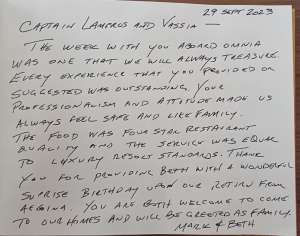 29 SEPT 2023
CAPTAIN LAMBROS AND VASSIA —
THE WEEK WITH YOU ABOARD OMNIA
WAS ONE THAT WE WILL ALWAYS TREASURE.
EVERY EXPERIENCE THAT YOU PROVIDED OR
SUGGESTED WAS OUTSTANDING. YOUR
PROFESSIONALISM AND ATTITUDE MADE US
ALWAYS FEEL SAFE AND LIKE FAMILY.
THE FOOD WAS FOUR STAR RESTAURANT
QUALITY AND THE SERVICE WAS EQUAL
TO LUXURY RESORT STANDARDS. THANK
YOU FOR PROVIDING BETH WITH A WONDERFUL
SUPRISE BIRTHDAY UPON OUR RETURN FROM
AEGINA. YOU ARE BOTH WELCOME TO COME
TO OUR HOMES AND WILL BE GREETED AS FAMILY.
MARK & BETH